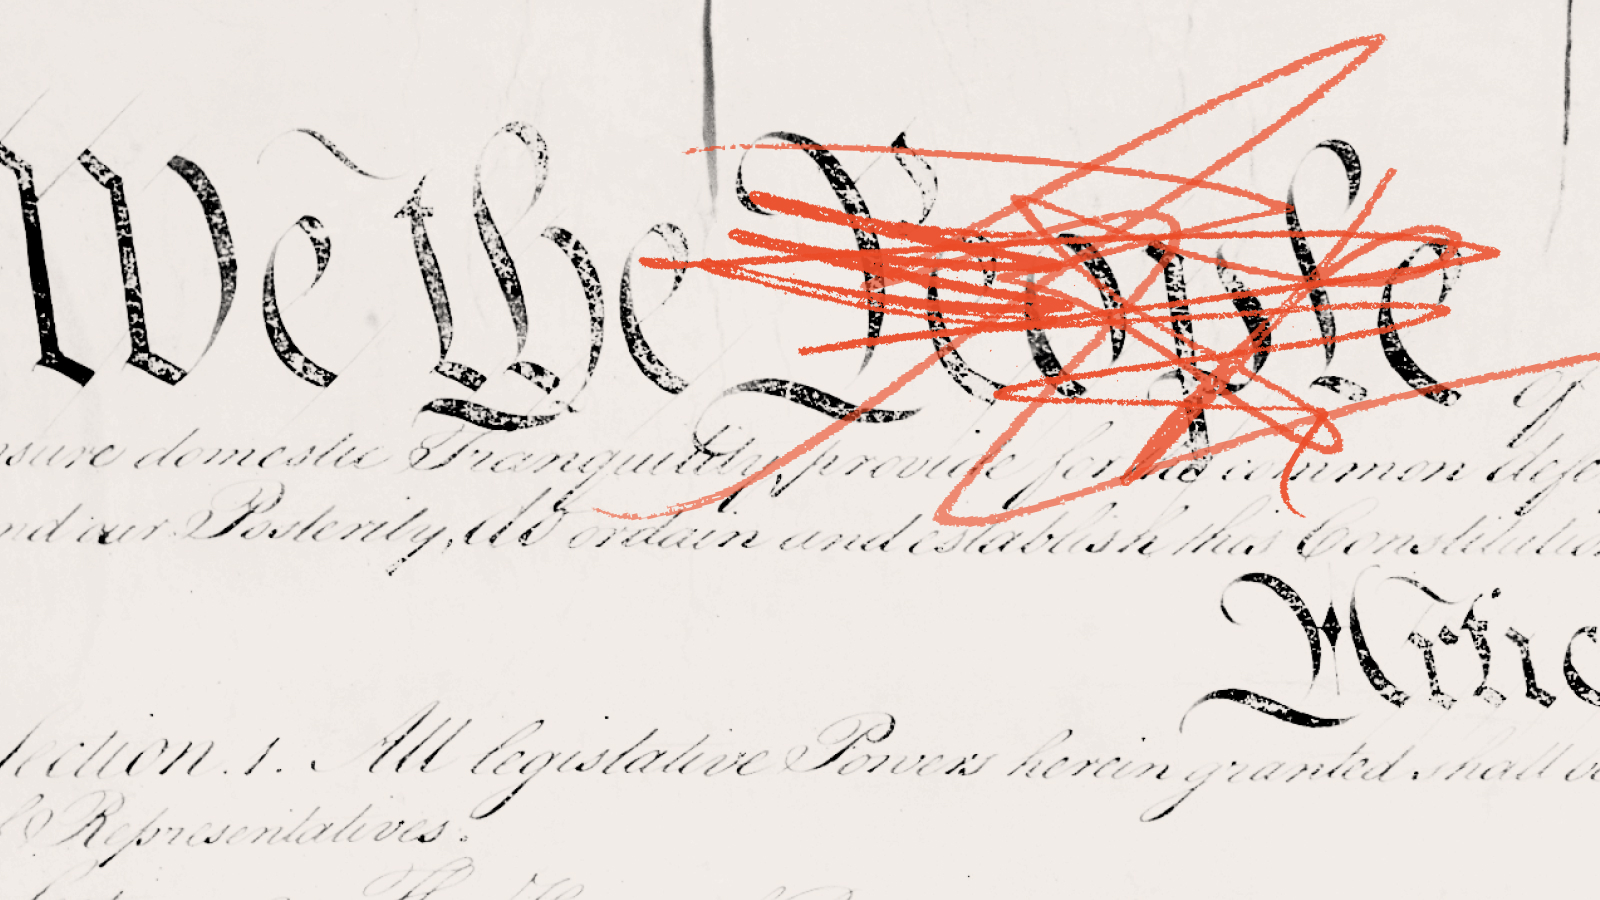 We the People
nsure domestic Tranquility, provide for the common defe
nd our Posterity, do ordain and establish this Constitution
Artic
Section. 1. All legislative Powers herein granted shall be
f Representatives.